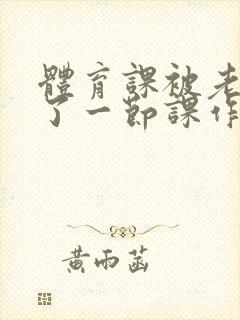 體育課被老
了一節課作
黃雨菡